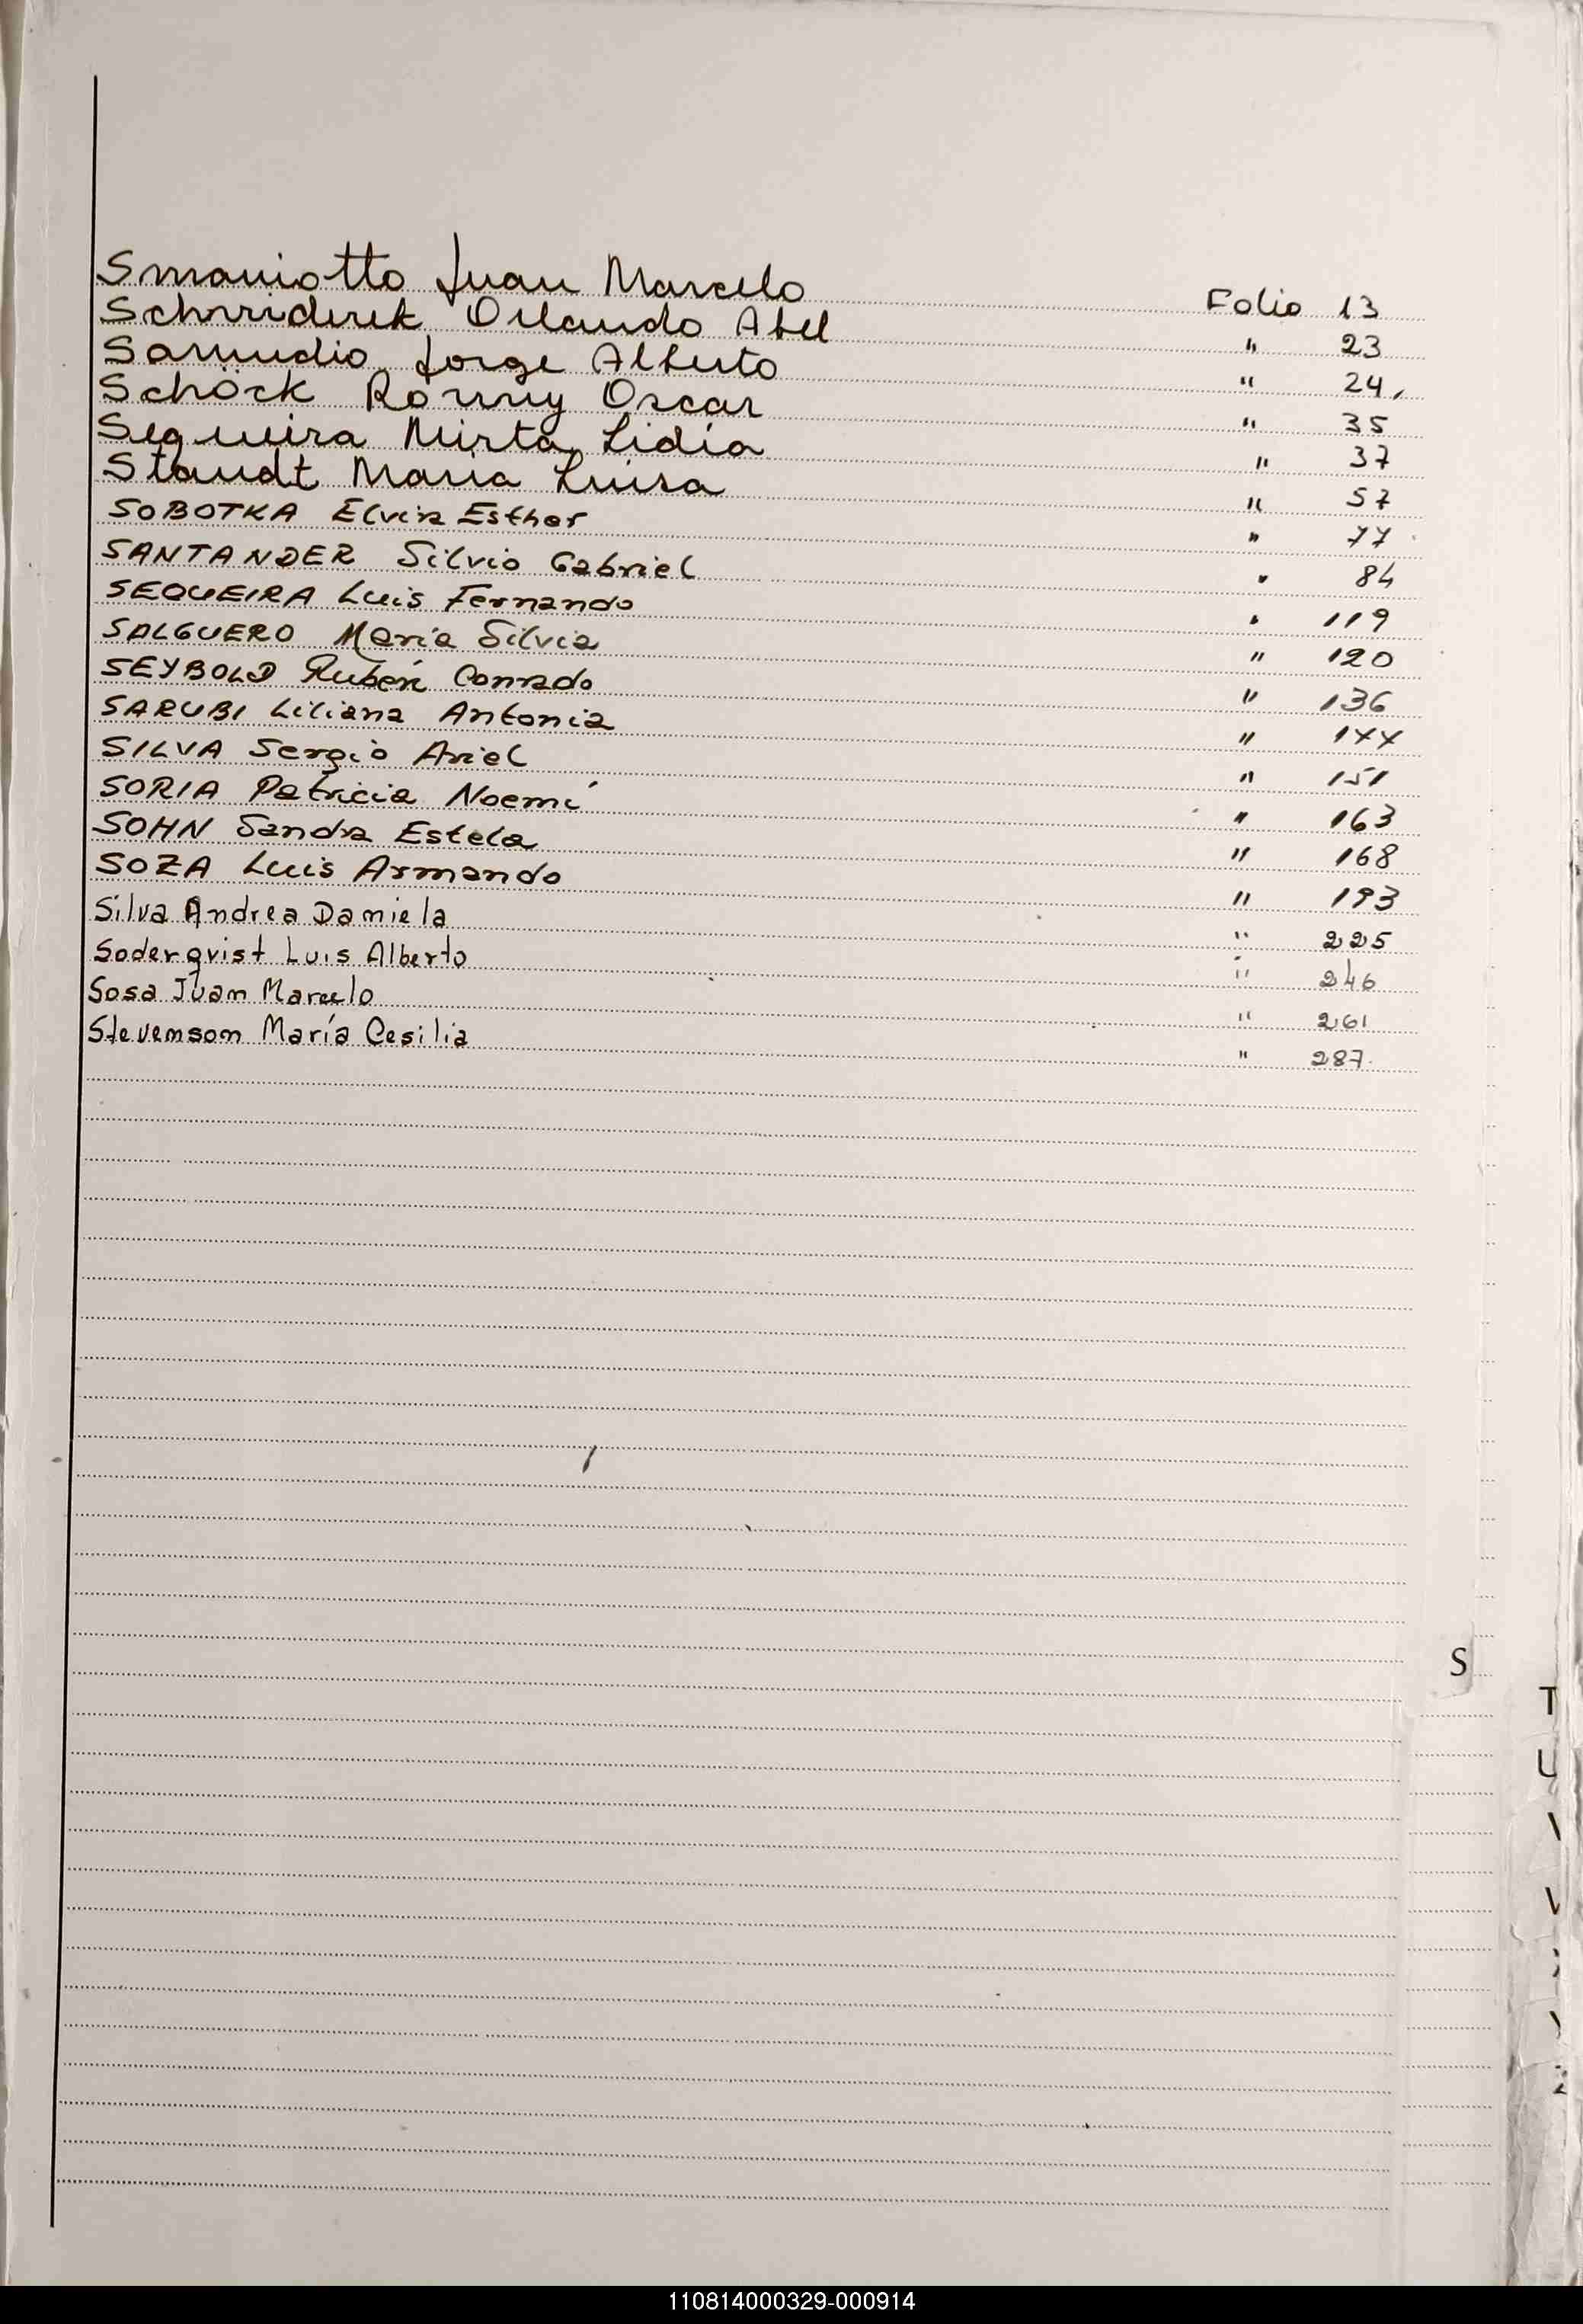 Smaniotto Juan Marcelo Folio 13
Schmiderek Orlando Abel " 23
Samudio Jorge Alberto " 24
Schöck Ronny Oscar " 35
Sequeira Mirta Lidia " 37
Staudt Maria Luisa " 57
SOBOTKA Elvia Esther " 77
SANTANDER Silvio Gabriel " 84
SEQUEIRA Luis Fernando " 119
SALGUERO María Silvia " 120
SEYBOLD Rubén Conrado " 136
SARUBI Liliana Antonia " 144
SILVA Sergio Ariel " 151
SORIA Patricia Noemí " 163
SOHN Sandra Estela " 168
SOZA Luis Armando " 193
Silva Andrea Daniela " 225
Soderqvist Luis Alberto " 246
Sosa Juan Marcelo " 261
Stevenson María Cesilia " 287
S
T
U
V
110814000329-000914